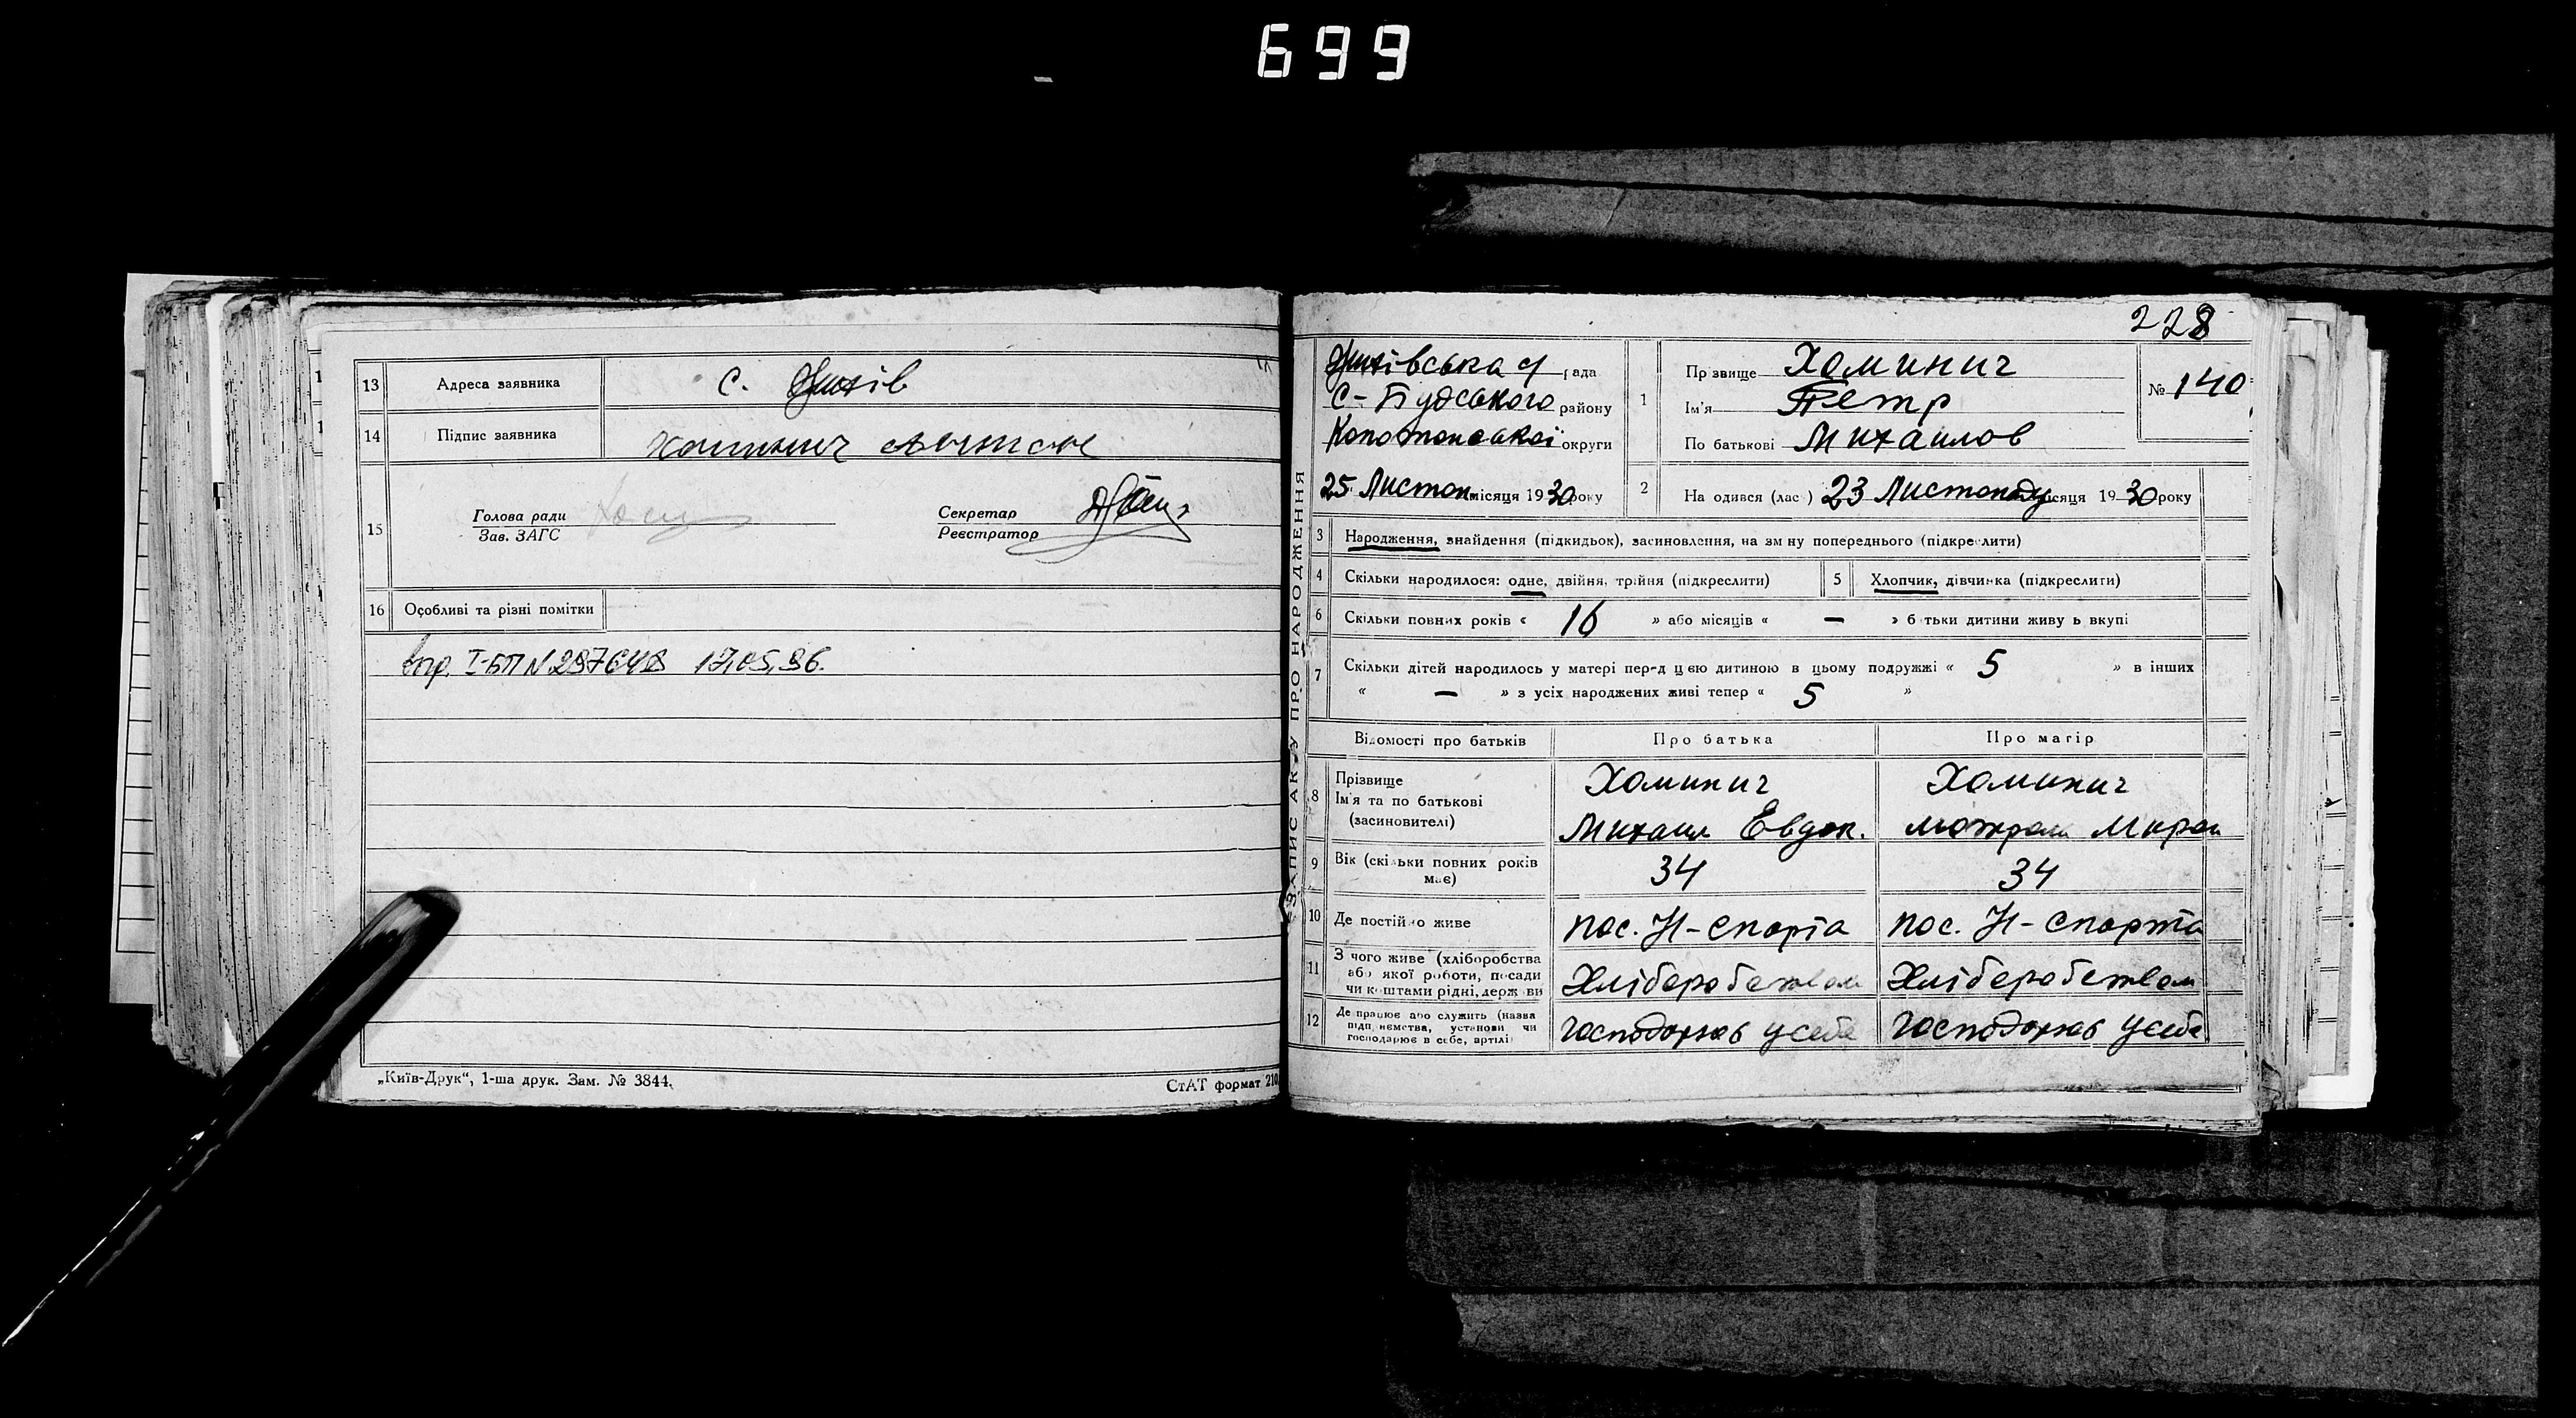 699
13 Адреса заявника с.
14 Підпис заявника Хоминич
15 Голова ради
Зав. ЗАГС
Секретар
Реєстратор
16 Особливі та різні помітки
I-БП N 297648 17.05.96.
„Київ-Друк“, 1-ша друк. Зам. № 3844.
СтАТ формат 210
ЗАПИС АКТУ ПРО НАРОДЖЕННЯ
228
рада
С-Будського району
Конотопської округи
25 Листоп місяця 1930 року
1 Прізвище Хоминич
Ім'я Петр
По батькові Михаилов
№ 140
2 Народився (лась) 23 Листопаду місяця 1930 року
3 Народження, знайдення (підкидьок), засиновлення, на зміну попереднього (підкреслити)
4 Скільки народилося: одне, двійня, трійня (підкреслити)
5 Хлопчик, дівчинка (підкреслити)
6 Скільки повних років « 16 » або місяців « — » батьки дитини живуть вкупі
7 Скільки дітей народилось у матері перед цією дитиною в цьому подружжі « 5 » в інших
« — » з усіх народжених живі тепер « 5 »
Відомості про батьків Про батька Про матір
8 Прізвище Хоминич Хоминич
Ім'я та по батькові
(засиновителі) Михаил Евдок.
9 Вік (скільки повних років має) 34 34
10 Де постійно живе пос. Н-Спарта пос. Н-Спарта
11 З чого живе (хліборобства
або якої роботи, посади
чи коштами рідні, держави Хліборобством Хліборобством
12 Де працює або служить (назва
підприємства, установи чи
господарює в себе, артілі) Господорюв усебе Господорюв усебе